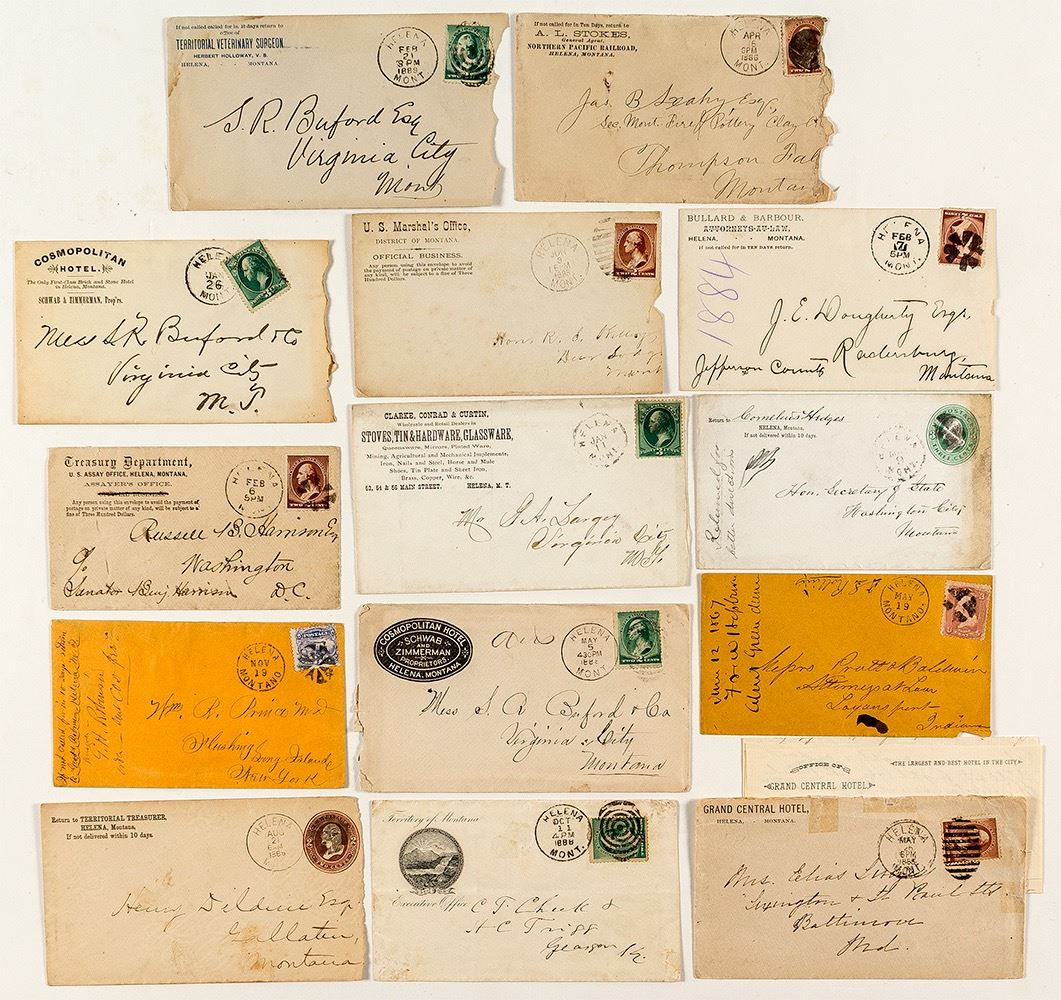 If not called for in 10 days return to
office of
TERRITORIAL VETERINARY SURGEON.
HERBERT HOLLOWAY, V. S.
HELENA, - MONTANA.
HELENA
FEB
21
3 PM
1889
MONT.
S. R. Buford Esq
Virginia City
Mont
If not called for in Ten Days, return to
A. L. STOKES,
General Agent,
NORTHERN PACIFIC RAILROAD,
HELENA, MONTANA.
HELENA
APR
6PM
1886
MONT.
Jas B
Sec. Mont. Fire & Pottery Clay Co
Thompson Fal
Montan
COSMOPOLITAN
HOTEL.
The Only First-Class Brick and Stone Hotel
in Helena, Montana.
SCHWAB & ZIMMERMAN, Prop'rs.
HELENA
JAN
26
MONT
Mess S R Buford & Co
Virginia City
M. T.
U. S. Marshal's Office,
DISTRICT OF MONTANA.
OFFICIAL BUSINESS.
Any person using this envelope to avoid
the payment of postage on private matter of
any kind, will be subject to a fine of Three
Hundred Dollars.
HELENA
MONT.
Hon. R. B.
Deer Lodge
BULLARD & BARBOUR,
ATTORNEYS-AT-LAW,
HELENA, - - MONTANA.
If not called for in TEN DAYS return.
HELENA
FEB
17
5PM
MONT.
1884
J. E. Dougherty Esqr.
Radersburg
Jefferson County Montana
Treasury Department,
U. S. ASSAY OFFICE, HELENA, MONTANA,
ASSAYER'S OFFICE.
Any person using this envelope to avoid the payment of
postage on private matter of any kind, will be subject to a
fine of Three Hundred Dollars.
HELENA
FEB
6
5PM
Russell B. Harrison Esq
c/o Washington
Senator Benj Harrison D. C.
CLARKE, CONRAD & CURTIN,
Wholesale and Retail Dealers in
STOVES, TIN & HARDWARE, GLASSWARE,
Queensware, Mirrors, Plated Ware,
Mining, Agricultural and Mechanical Implements,
Iron, Nails and Steel, Horse and Mule
Shoes, Tin Plate and Sheet Iron,
Brass, Copper, Wire, &c.
52, 54 & 56 MAIN STREET. HELENA, M. T.
HELENA
JAN
Mr S. A. Largey
Virginia City
M. T.
Return to Cornelius Hedges
HELENA, Montana,
If not delivered within 10 days.
Hon. Secretary of State
Washington City
Montana
HELENA
NOV
19
MONTANA
Wm. R. Prince M.d
Flushing
Long Island
New York
COSMOPOLITAN HOTEL
SCHWAB
AND
ZIMMERMAN
PROPRIETORS
HELENA, MONTANA
HELENA
MAY
5
430PM
MONT.
Mess S R Buford & Co
Virginia City
Montana
June 12 1867
HELENA
MAY
19
MONTANA
3
Messrs Pratt & Baldwin
Attorneys at Law
Logansport
Indiana
Return to TERRITORIAL TREASURER,
HELENA, Montana,
If not delivered within 10 days.
HELENA
AUG
21
Henry Dildine Esq
Gallatin,
Montana
Territory of Montana
Executive Office
HELENA
OCT
11
4PM
1888
MONT.
C F Cheek &
H C Trigg
Glasgow Ky.
OFFICE OF
GRAND CENTRAL HOTEL
THE LARGEST AND BEST HOTEL IN THE CITY
GRAND CENTRAL HOTEL,
HELENA, - MONTANA.
HELENA
MAY
6PM
MONT.
Mrs. Elias
Lexington & St Paul Sts
Baltimore
Md.